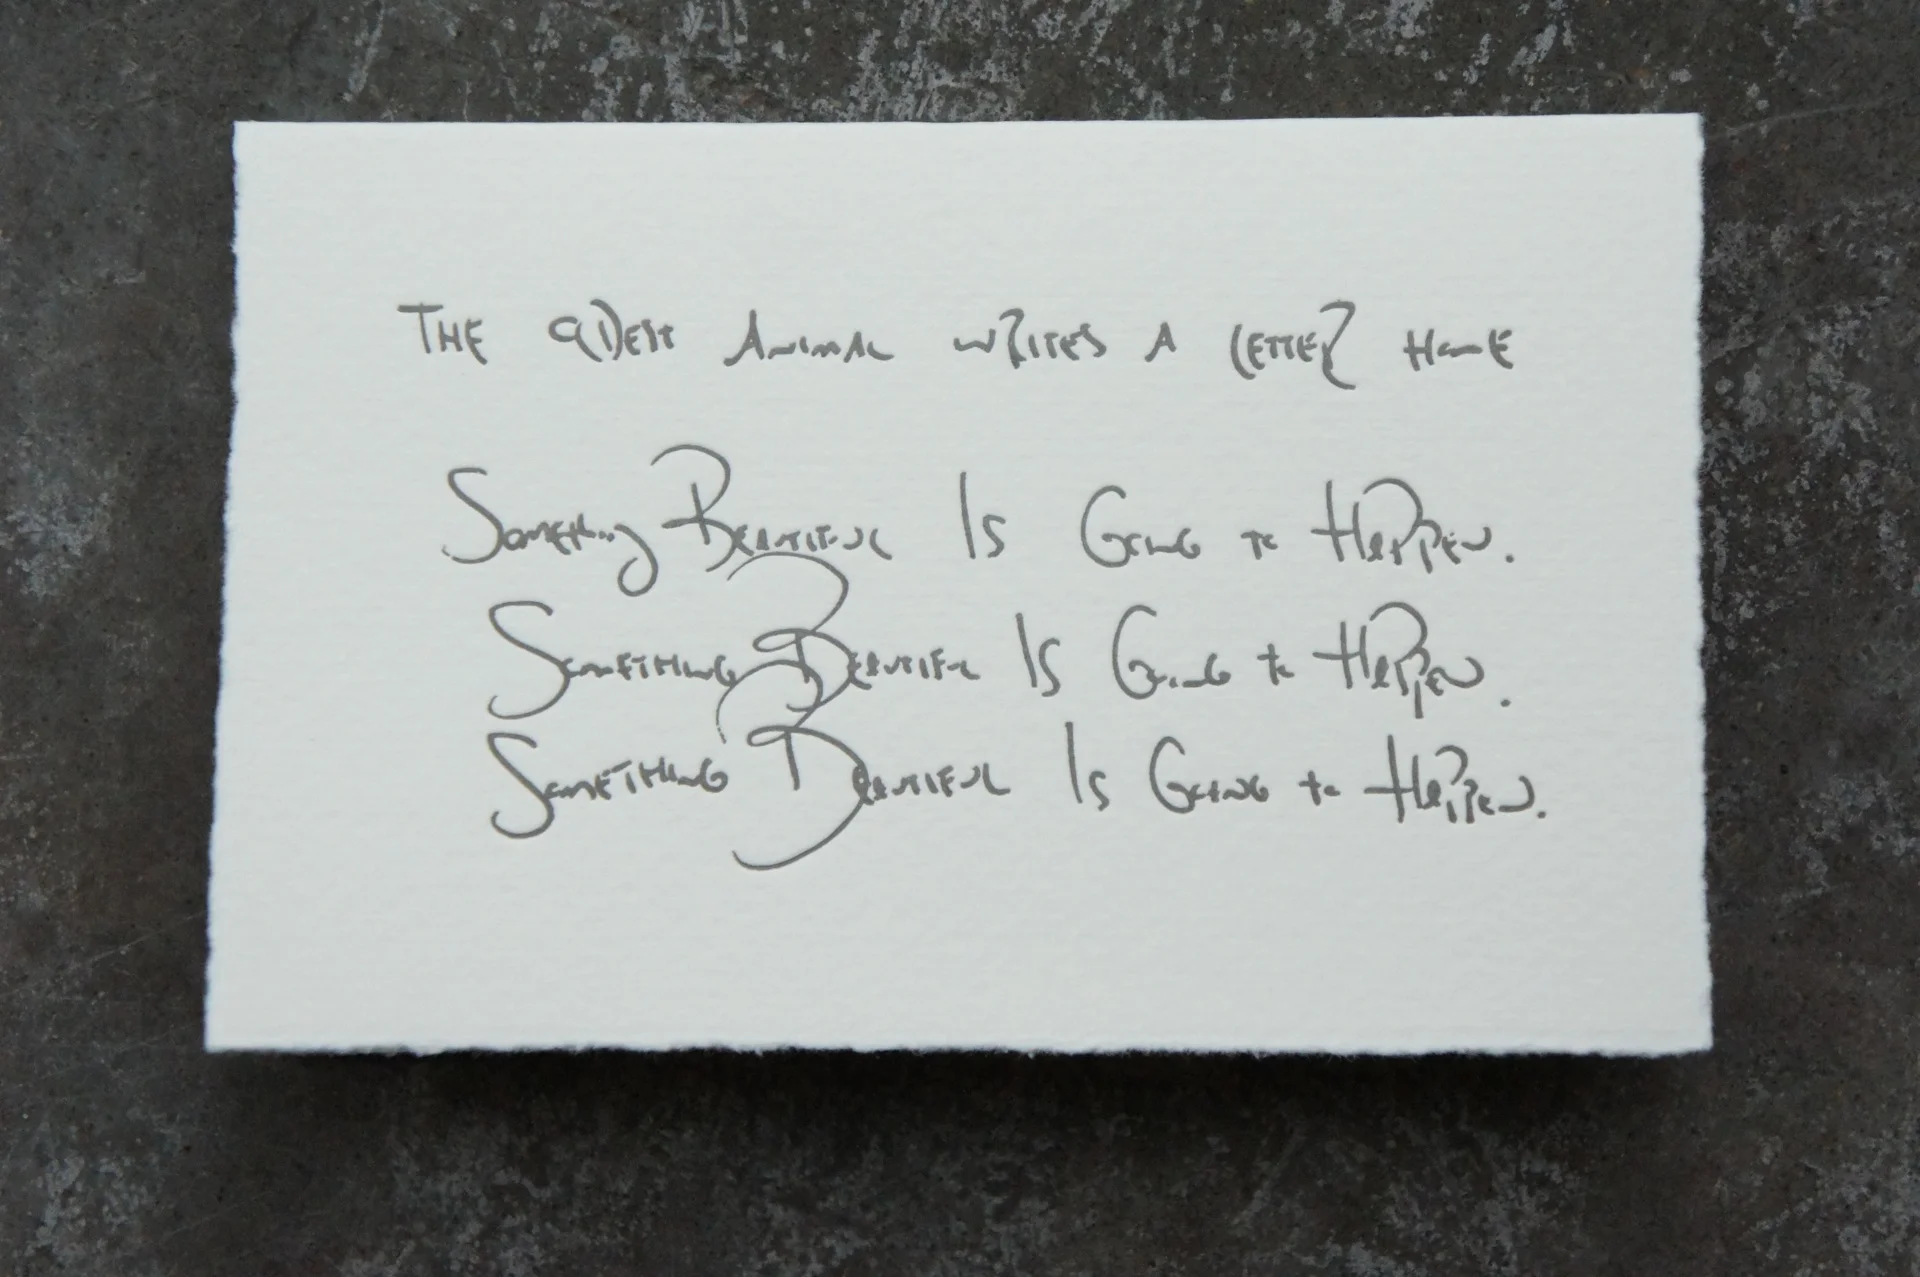 THE OLDEST ANIMAL WRITES A LETTER HOME
Something Beautiful Is Going to Happen.
Something Beautiful Is Going to Happen.
Something Beautiful Is Going to Happen.